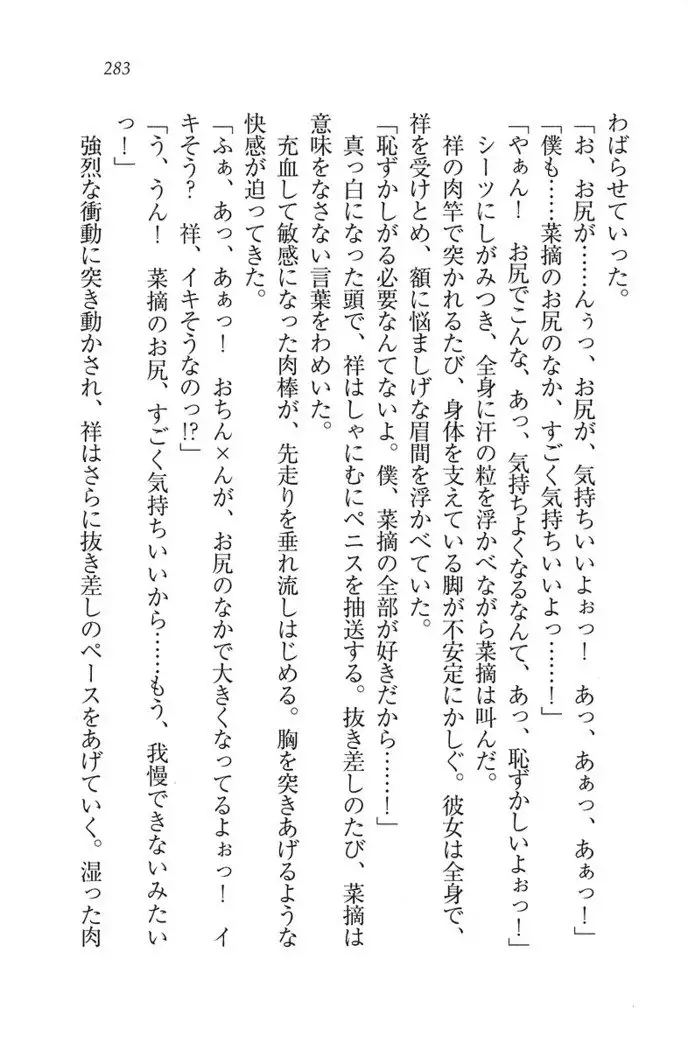 283
わばらせていった。
「お、お尻が……んぅっ、お尻が、気持ちいいよぉっ！　あっ、あぁっ、あぁっ！」
「僕も……菜摘のお尻のなか、すごく気持ちいいよっ……！」
「やぁん！　お尻でこんな、あっ、気持ちよくなるなんて、あっ、恥ずかしいよぉっ！」
シーツにしがみつき、全身に汗の粒を浮かべながら菜摘は叫んだ。
祥の肉竿で突かれるたび、身体を支えている脚が不安定にかしぐ。彼女は全身で、
祥を受けとめ、額に悩ましげな眉間を浮かべていた。
「恥ずかしがる必要なんてないよ。僕、菜摘の全部が好きだから……！」
真っ白になった頭で、祥はしゃにむにペニスを抽送する。抜き差しのたび、菜摘は
意味をなさない言葉をわめいた。
充血して敏感になった肉棒が、先走りを垂れ流しはじめる。胸を突きあげるような
快感が迫ってきた。
「ふぁ、あっ、あぁっ！　おちん×んが、お尻のなかで大きくなってるよぉっ！　イ
キそう？　祥、イキそうなのっ!?」
「う、うん！　菜摘のお尻、すごく気持ちいいから……もう、我慢できないみたい
っ！」
強烈な衝動に突き動かされ、祥はさらに抜き差しのペースをあげていく。湿った肉